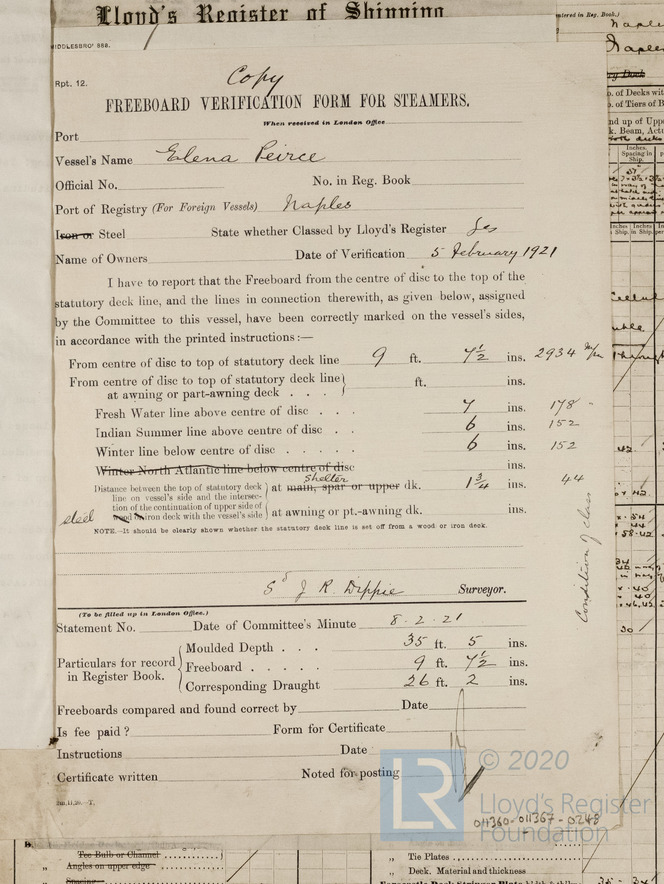 Lloyd's Register of Shipping
MIDDLESBRO' 888.
Rpt. 12.
Copy
FREEBOARD VERIFICATION FORM FOR STEAMERS.
When received in London Office
Port
Vessel's Name Elena Peirce
Official No. No. in Reg. Book
Port of Registry (For Foreign Vessels) Naples
Iron or Steel State whether Classed by Lloyd's Register Yes
Name of Owners Date of Verification 5 February 1921
I have to report that the Freeboard from the centre of disc to the top of the
statutory deck line, and the lines in connection therewith, as given below, assigned
by the Committee to this vessel, have been correctly marked on the vessel's sides,
in accordance with the printed instructions :—
From centre of disc to top of statutory deck line 9 ft. 7½ ins. 2934 m/m
From centre of disc to top of statutory deck line
at awning or part-awning deck . . . ft. ins.
Fresh Water line above centre of disc . . . 7 ins. 178 "
Indian Summer line above centre of disc . . 6 ins. 152
Winter line below centre of disc . . . . . 6 ins. 152
Winter North Atlantic line below centre of disc ins.
shelter
Distance between the top of statutory deck
line on vessel's side and the intersec-
tion of the continuation of upper side of
steel wood or iron deck with the vessel's side
at main, spar or upper dk. 1¾ ins. 44
at awning or pt.-awning dk. ins.
NOTE.—It should be clearly shown whether the statutory deck line is set off from a wood or iron deck.
Condition of class
Sd J R. Dippie Surveyor.
(To be filled up in London Office.)
Statement No. Date of Committee's Minute 8 . 2 . 21
Particulars for record
in Register Book.
Moulded Depth . . . 35 ft. 5 ins.
Freeboard . . . . . 9 ft. 7½ ins.
Corresponding Draught 26 ft. 2 ins.
Freeboards compared and found correct by Date
Is fee paid ? Form for Certificate
Instructions Date
Certificate written Noted for posting
© 2020
LR
Lloyd's Register
Foundation
011360-011367-0248
Tee Bulb or Channel
Angles on upper edge
Spacing
Tie Plates
Deck. Material and thickness